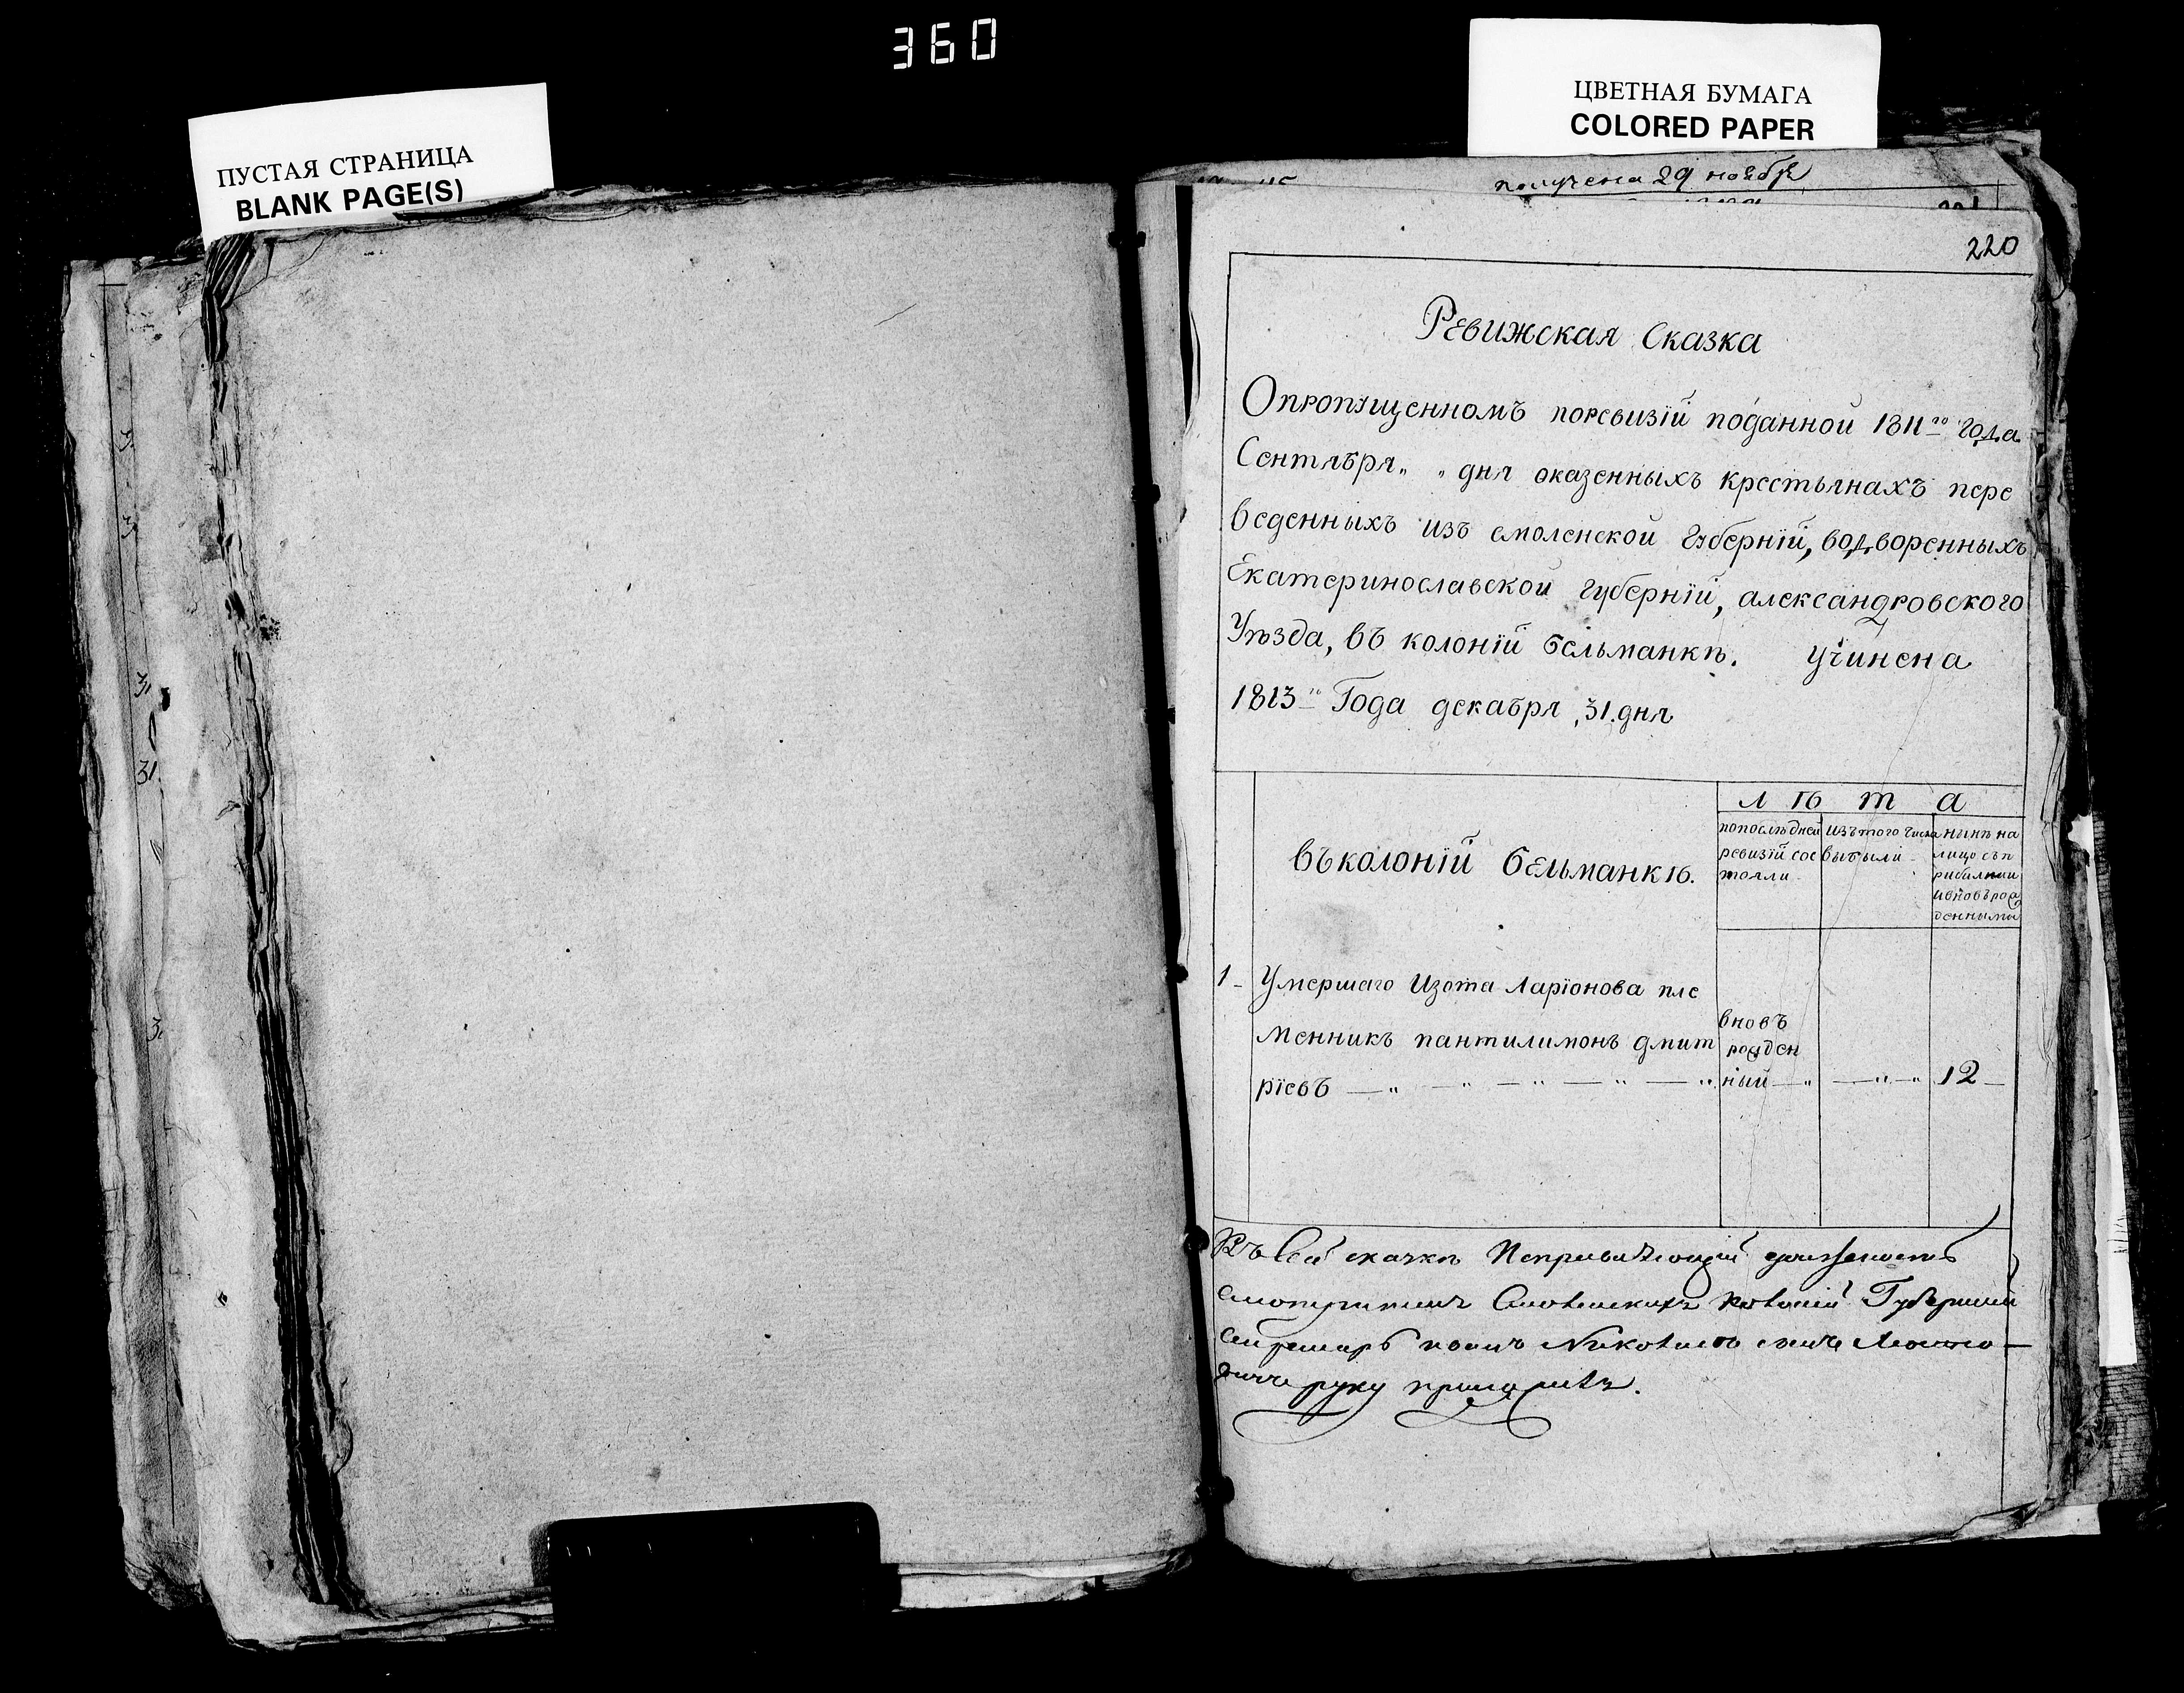 360
ПУСТАЯ СТРАНИЦА
BLANK PAGE(S)
ЦВЕТНАЯ БУМАГА
COLORED PAPER
получена 29 ноябр
220
Ревижская Сказка
Опропущенномъ поревизїй поданной 1811го года
Сентября „ „ дня оказенныхъ крестьянахъ пере
веденныхъ изъ смоленской Губернїй, водворенныхъ
Екатеринославской губернїй, александровского
Уѣзда, въ колонїй бельманкѣ. учинена
1813го Года декабря „31„ дня
лѣта
въколонїй бельманкѣ.
попослѣдней
ревизїй сос
тояли
изътого числа
выбыли
нынѣ на
лицо съп
рибылыми
ивновърож
денными
1 - Умершаго Изота Ларїонова пле
менникъ пантилимонъ дмит
рїевъ
вновъ
рожден
ный
12
Къ сей скаскѣ Исправляющїй должность
смотрителя Смоленскихъ колонїй Губернскїй
Секретарь
руку приложилъ.